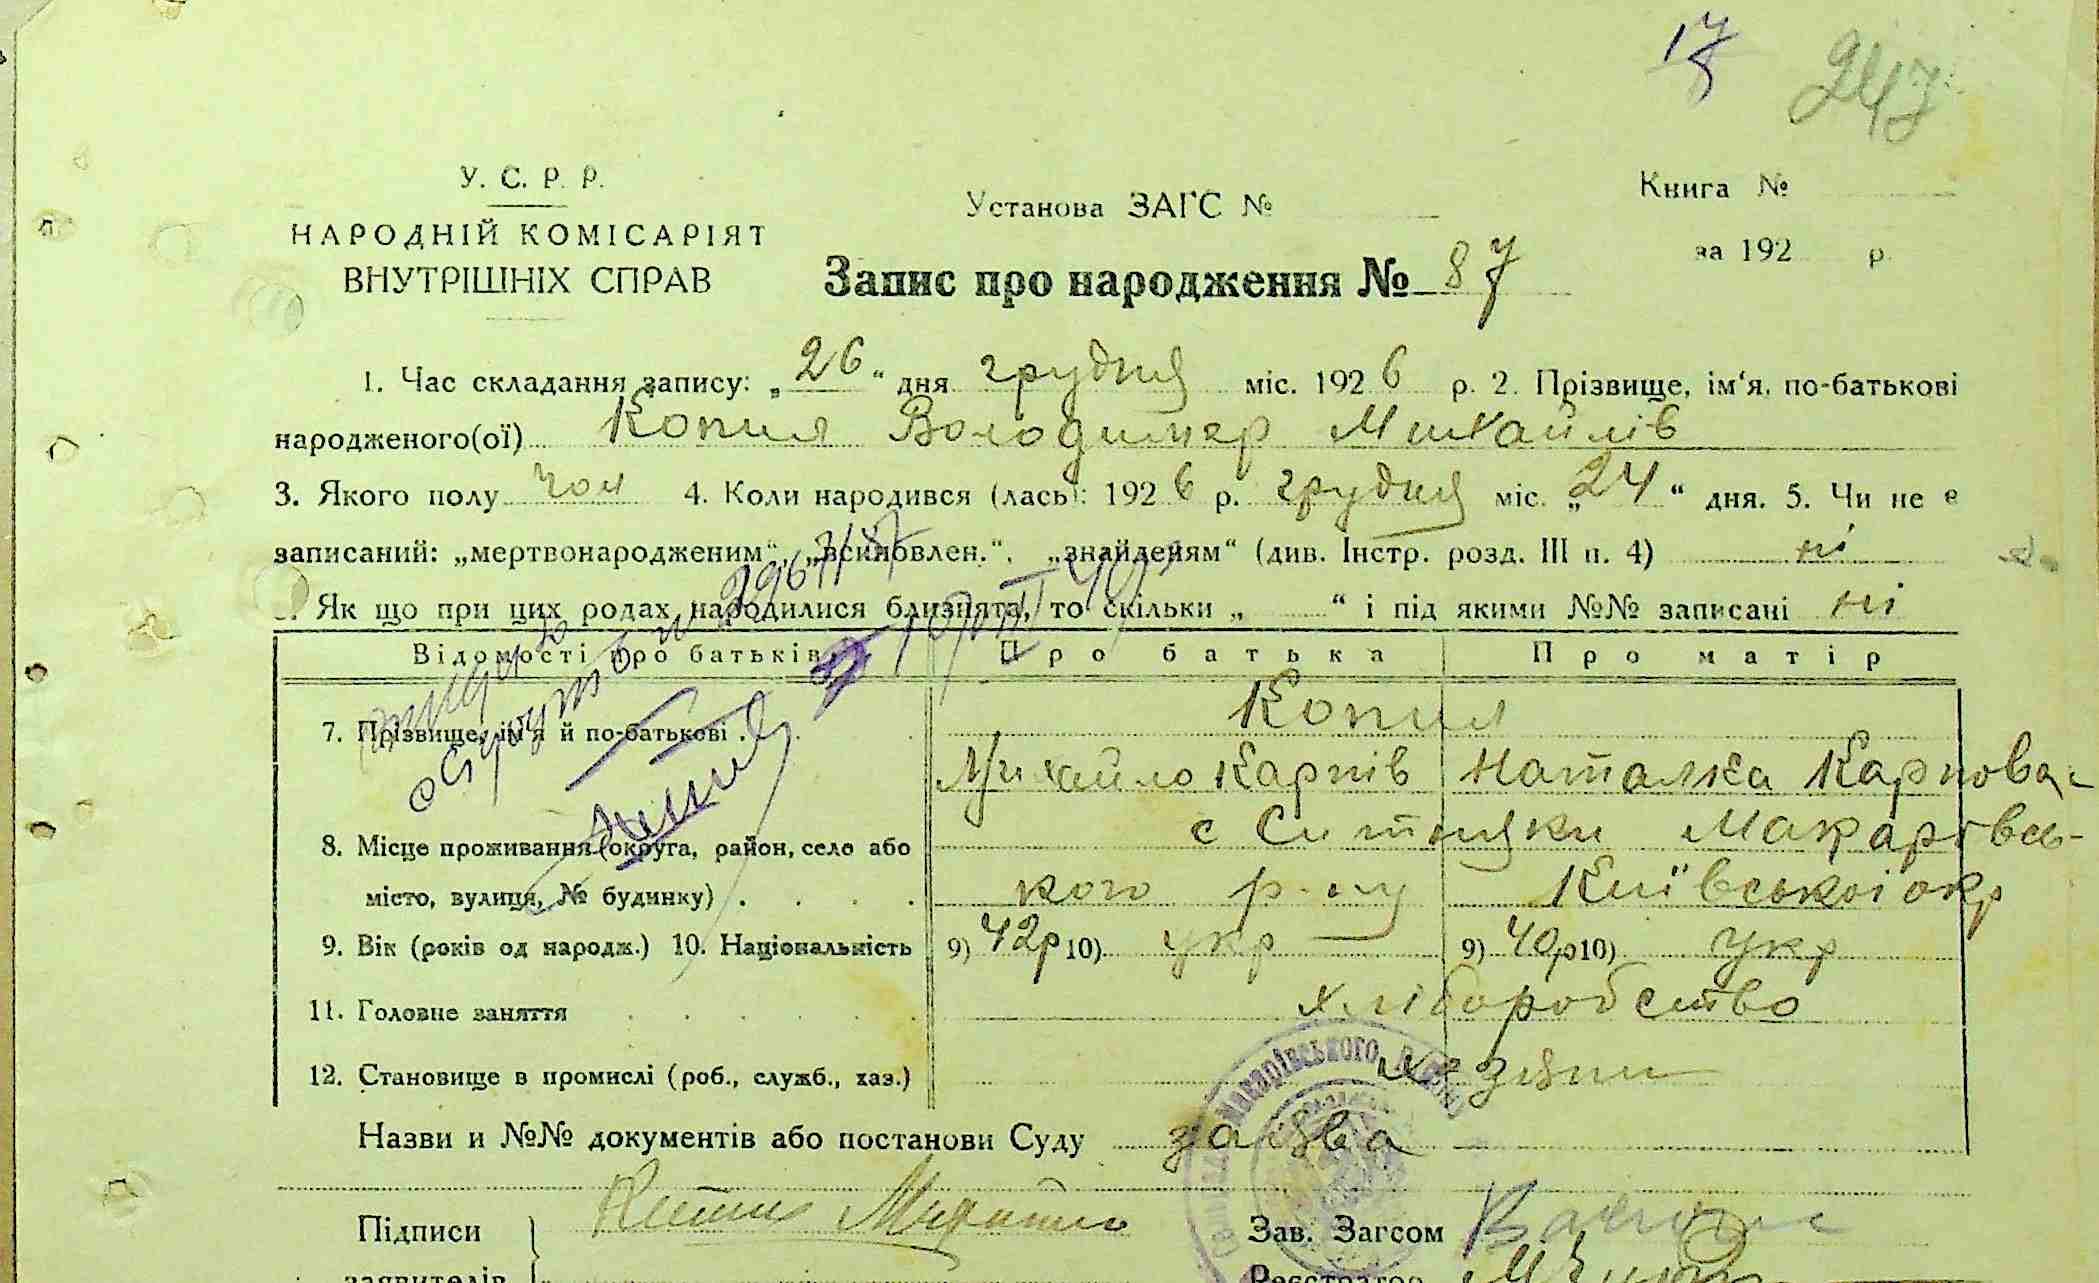 17
247
У. С. Р. Р.
НАРОДНІЙ КОМІСАРІЯТ
ВНУТРІШНІХ СПРАВ
Установа ЗАГС №
Книга №
за 192 р.
Запис про народження № 87
1. Час складання запису: „26“ дня грудня міс. 1926 р. 2. Прізвище, ім‘я, по-батькові
народженого(ої) Копил Володимер Михайлів
3. Якого полу чол 4. Коли народився (лась): 1926 р. грудня міс. „24“ дня. 5. Чи не є
записаний: „мертвонародженим“, „всиновлен.“, „знайденям“ (див. Інстр. розд. III п. 4) ні
. Як що при цих родах народилися близнята, то скільки „ “ і під якими №№ записані ні
Відомості про батьків Про батька Про матір
7. Прізвище, ім‘я й по-батькові . . . Копил
Михайло Карпів Наталка Карпова
8. Місце проживання (округа, район, село або с Ситняки Макарівсь-
місто, вулиця, № будинку) . . . . кого р-ну Київськоі окр
9. Вік (років од народж.) 10. Національність 9) 42р 10) укр 9) 40р 10) укр
11. Головне заняття . . . . . хліборобство
12. Становище в промислі (роб., служб., хаз.) хазяіни
Макарівського
Назви и №№ документів або постанови Суду заява
Підписи Зав. Загсом
заявителів Реєстратор